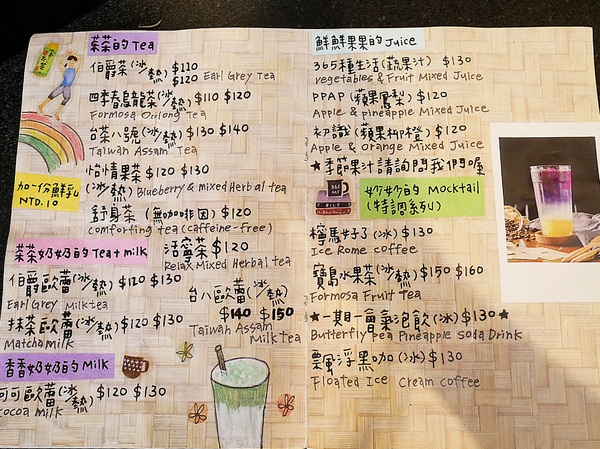 茶茶的 Tea
伯爵茶 (冰/熱) $110 $120
Earl Grey Tea
四季春烏龍茶 (冰/熱) $110 $120
Formosa Oolong Tea
台茶八號 (冰/熱) $130 $140
Taiwan Assam Tea
怡情果茶 $120 $130
(冰/熱) Blueberry & mixed Herbal tea
加一份鮮乳
NTD.10
舒身茶 (無咖啡因) $120
comforting tea (caffeine-free)
活寧茶 $120
Relax Mixed Herbal tea
茶茶奶奶的 Tea + milk
伯爵歐蕾 (冰/熱) $120 $130
Earl Grey Milk tea
台八歐蕾 (冰/熱)
$140 $150
Taiwan Assam
Milk Tea
抹茶歐蕾 (冰/熱) $120 $130
Matcha milk
香香奶奶的 Milk
可可歐蕾 (冰/熱) $120 $130
cocoa milk
鮮鮮果果的 Juice
365種生活 (蔬果汁) $130
vegetables & Fruit Mixed Juice
PPAP (蘋果鳳梨) $120
Apple & pineapple Mixed Juice
初識 (蘋果柳橙) $120
Apple & orange Mixed Juice
★季節果汁請詢問我們喔
妙妙的 Mocktail
(特調系列)
檸馬好了 (冰) $130
Ice Rome coffee
寶島水果茶 (冰/熱) $150 $160
Formosa Fruit Tea
★一期一會氣泡飲 (冰) $130★
Butterfly pea Pineapple soda Drink
飄浮黑咖 (冰) $130
Floated Ice Cream coffee